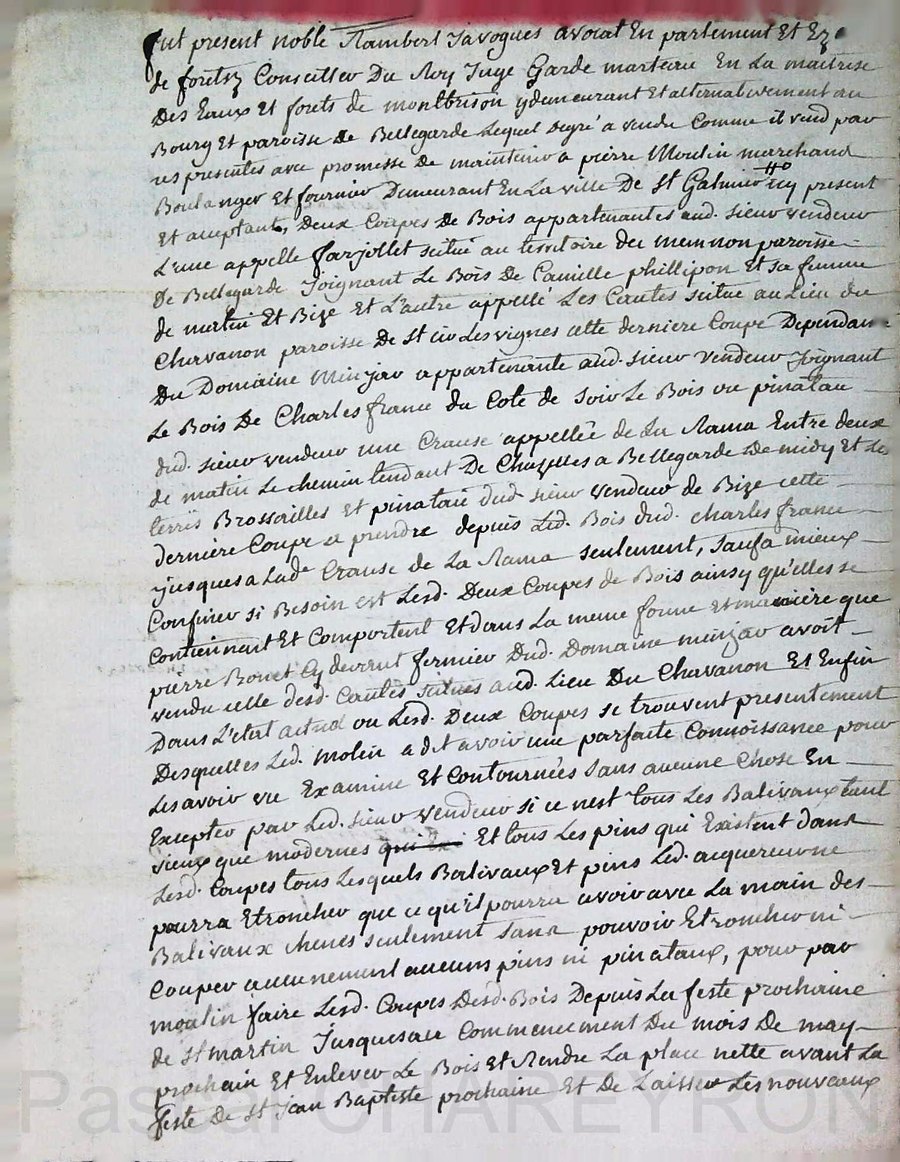 fut present noble Rambert Javogues avocat En parlement Et
de forets Conseiller Du Roy Juge Garde marteau En La maitrise
Des Eaux Et forets de montbrison y demeurant Et alternativement au
Bourg Et paroisse De Bellegarde Lequel degré a vendu Comme il vend par
res presentes avec promesse De maintenir a pierre Moulin marchand
Boulanger Et fournier Demeurant En La ville De St Galmier icy present
Et acceptant, Deux Coupes De Bois appartenantes aud. sieur vendeur
L'une appellé farjollet situé au territoire du paroisse
De Bellegarde Joignant Le Bois De Camille phillipon Et sa femme
de matin Et Bize Et L'autre appellé Les Cautes situé au Lieu du
Chavanon paroisse De St Les vignes cette derniere Coupe Dependante
Du Domaine Minjar appartenante aud. sieur vendeur Joignant
Le Bois De Charles france du Coté de Soir Le Bois ou pinatau
dud. sieur vendeur une Crause appellée de La Rama Entre deux
de matin Le chemin tendant De Chazelles a Bellegarde De midy Et Les
terres Brossailles Et pinatau dud sieur vendeur de Bize cette
derniere Coupe a prendre depuis Led. Bois dud. charles france
jusques a Lade Crause de La Rama seulement, sauf a mieux
Confiner si Besoin est Lesd. Deux Coupes de Bois ainsy qu'elles se
Contiennent Et Comportent Et dans La meme forme et maniere que
pierre Bonet Cy devant fermier Dud. Domaine minjar avoit
vendu celle desd. Cautes situées aud. Lieu Du Chavanon Et Enfin
Dans L'etat actuel ou Lesd. Deux Coupes se trouvent presentement
Desquelles Led. Molin a dit avoir une parfaite Connoissance pour
Les avoir vu Examiné Et Contournées sans aucune Chose En
Excepter par Led. sieur vendeur si ce nest tous Les Balivaux tant
vieux que modernes qui Et tous Les pins qui Existent dans
Lesd. Coupes tous Lesquels Balivaux Et pins Led. acquereur ne
pourra Etroncher que ce qu'il pourra avoir avec La main des
Balivaux chenes seulement sans pouvoir Etroncher ni
Couper aucunement aucuns pins ni pinataux, pour par
moulin faire Lesd. Coupes Desd. Bois Depuis La feste prochaine
de St martin Jusques au Commencement Du mois De may
prochain Et Enlever Le Bois Et Rendre La place nette avant La
feste De St Jean Baptiste prochaine Et De Laisser Les nouveaux
Pascal CHAREYRON